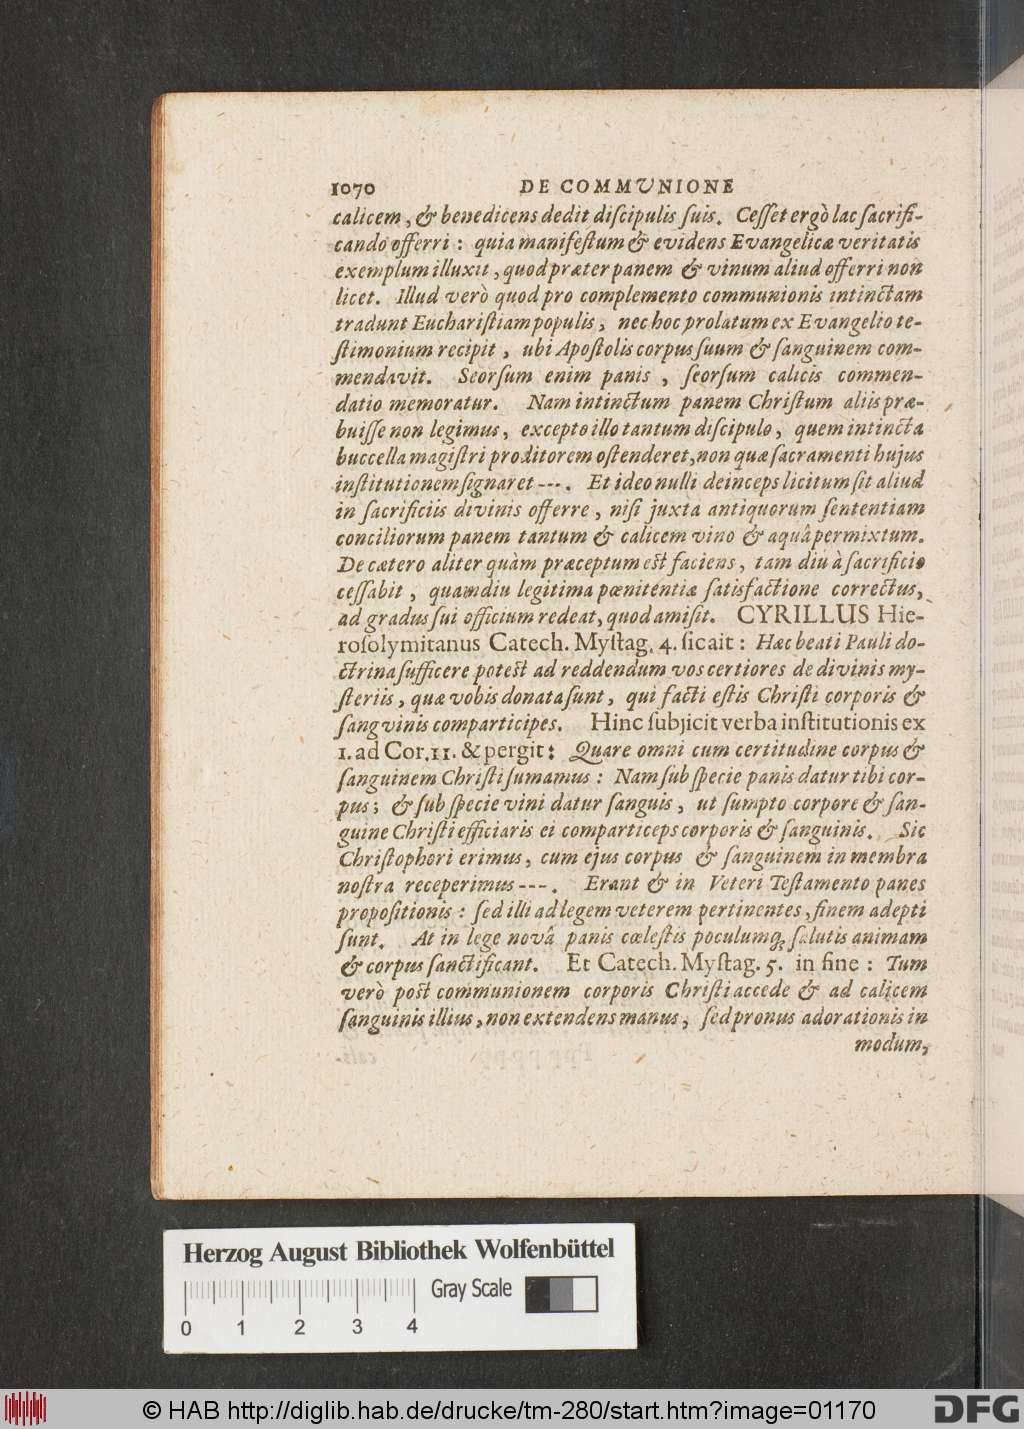 1070 DE COMMVNIONE
calicem, & benedicens dedit diſcipulis ſuis. Ceſſet ergò lac ſacrifi-
cando offerri : quia manifeſtum & evidens Evangelicæ veritatis
exemplum illuxit, quod præter panem & vinum aliud offerri non
licet. Illud verò quod pro complemento communionis intinctam
tradunt Euchariſtiam populis, nec hoc prolatum ex Evangelio te-
ſtimonium recipit, ubi Apoſtolis corpus ſuum & ſanguinem com-
mendavit. Seorſum enim panis, ſeorſum calicis commen-
datio memoratur. Nam intinctum panem Chriſtum aliis præ-
buiſſe non legimus, excepto illo tantum diſcipulo, quem intincta
buccella magiſtri proditorem oſtenderet, non quæ ſacramenti hujus
inſtitutionem ſignaret ---. Et ideo nulli deinceps licitum ſit aliud
in ſacrificiis divinis offerre, niſi juxta antiquorum ſententiam
conciliorum panem tantum & calicem vino & aquâ permixtum.
De cætero aliter quàm præceptum est faciens, tam diu à ſacrificio
ceſſabit, quamdiu legitima pœnitentiæ ſatisfactione correctus,
ad gradus ſui officium redeat, quod amiſit. CYRILLUS Hie-
roſolymitanus Catech. Myſtag. 4. ſic ait : Hæc beati Pauli do-
ctrina ſufficere potest ad reddendum vos certiores de divinis my-
ſteriis, quæ vobis donata ſunt, qui facti eſtis Chriſti corporis &
ſangvinis comparticipes. Hinc ſubjicit verba inſtitutionis ex
1. ad Cor. 11. & pergit : Quare omni cum certitudine corpus &
ſanguinem Chriſti ſumamus : Nam ſub ſpecie panis datur tibi cor-
pus ; & ſub ſpecie vini datur ſanguis, ut ſumpto corpore & ſan-
guine Chriſti efficiaris ei comparticeps corporis & ſanguinis. Sic
Chriſtophori erimus, cum ejus corpus & ſanguinem in membra
noſtra receperimus ---. Erant & in Veteri Teſtamento panes
propoſitionis : ſed illi ad legem veterem pertinentes, finem adepti
ſunt. At in lege novâ panis cœleſtis poculumq; ſalutis animam
& corpus ſanctificant. Et Catech. Myſtag. 5. in fine : Tum
verò post communionem corporis Chriſti accede & ad calicem
ſanguinis illius, non extendens manus, ſed pronus adorationis in
modum,
Herzog August Bibliothek Wolfenbüttel
Gray Scale
0 1 2 3 4
© HAB http://diglib.hab.de/drucke/tm-280/start.htm?image=01170
DFG